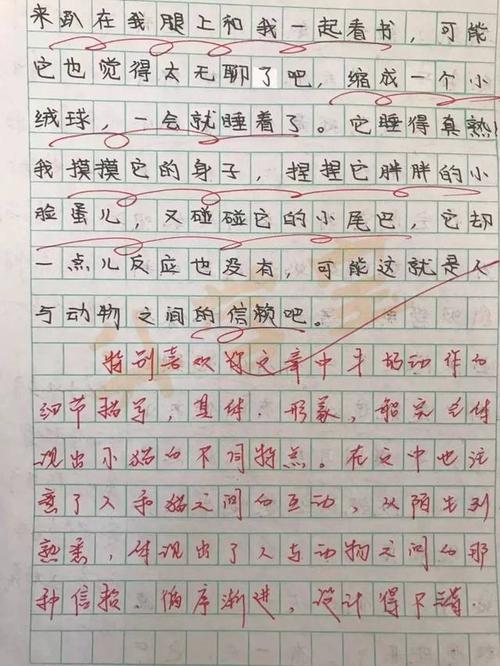 来趴在我腿上和我一起看书，可能
它也觉得太无聊了吧，缩成一个小
绒球，一会就睡着了。它睡得真熟！
我摸摸它的身子，捏捏它胖胖的小
脸蛋儿，又碰碰它的小尾巴，它却
一点儿反应也没有，可能这就是人
与动物之间的信赖吧。
特别喜欢你文章中的动作和
细节描写，具体、形象，能突
现出小猫的不同特点。在文中也注
意了人和猫之间的互动，从陌生到
熟悉，体现出了人与动物之间的那
种信赖。循序渐进，设计得不错。